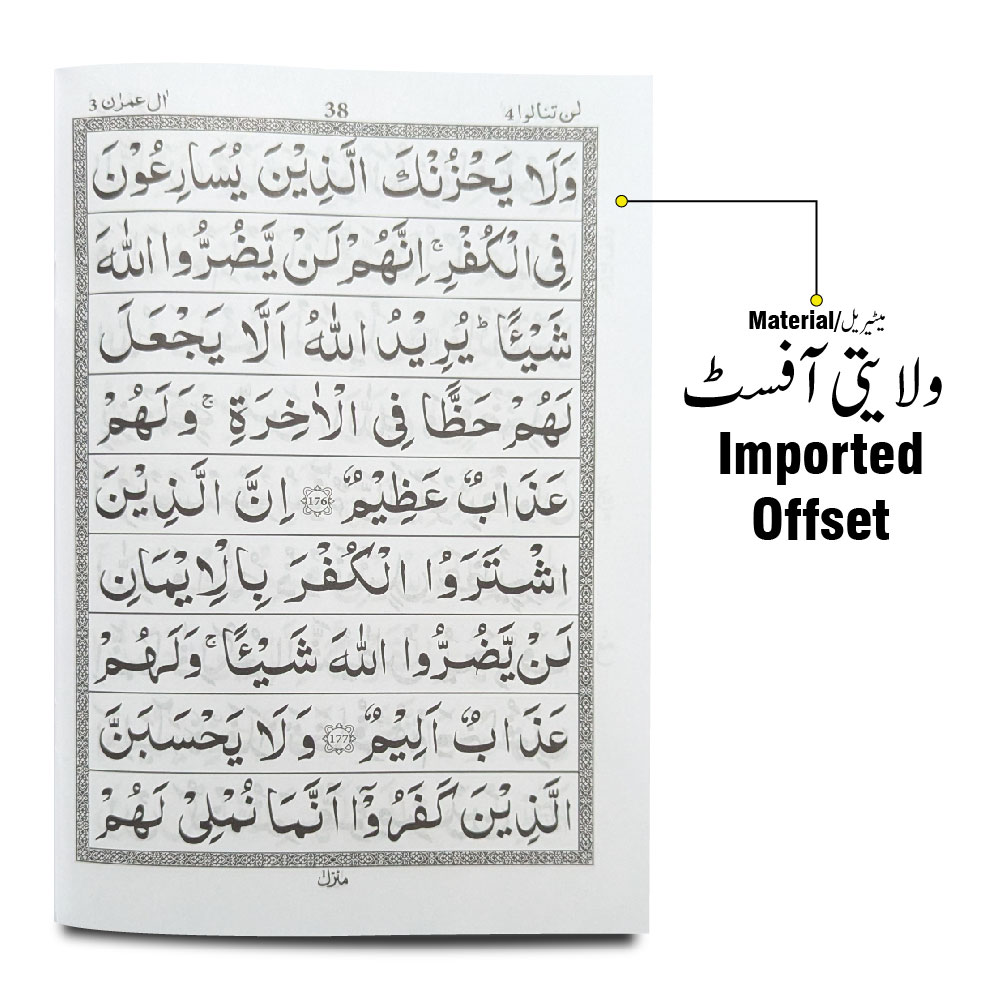 اٰل عمرٰن 3
38
لن تنالوا 4
وَلَا يَحْزُنْكَ الَّذِيْنَ يُسَارِعُوْنَ
فِى الْكُفْرِ ۚ اِنَّهُمْ لَنْ يَّضُرُّوا اللّٰهَ
شَيْـًٔا ؕ يُرِيْدُ اللّٰهُ اَلَّا يَجْعَلَ
لَهُمْ حَظًّا فِى الْاٰخِرَةِ ۚ وَلَهُمْ
عَذَابٌ عَظِيْمٌ 176 اِنَّ الَّذِيْنَ
اشْتَرَوُا الْكُفْرَ بِالْاِيْمَانِ
لَنْ يَّضُرُّوا اللّٰهَ شَيْـًٔا ۚ وَلَهُمْ
عَذَابٌ اَلِيْمٌ 177 وَلَا يَحْسَبَنَّ
الَّذِيْنَ كَفَرُوْٓا اَنَّمَا نُمْلِىْ لَهُمْ
منزل
Material/میٹیریل
ولایتی آفسٹ
Imported
Offset